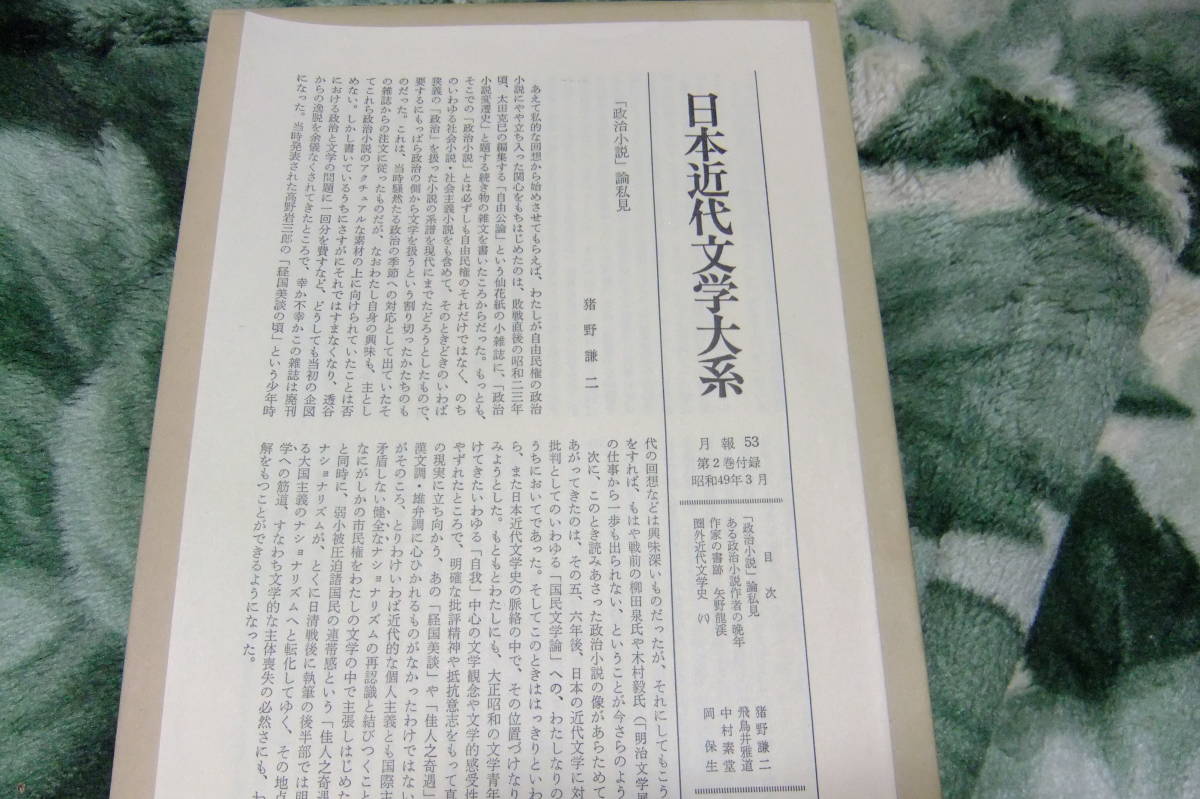 日本近代文学大系
月報 53
第2巻付録
昭和49年3月
目次
「政治小説」論私見 猪野謙二
ある政治小説作者の晩年 飛鳥井雅道
作家の書跡 矢野龍渓 中村素堂
圏外近代文学史 ㈧ 岡保生
「政治小説」論私見
猪野謙二
あえて私的な回想から始めさせてもらえば、わたしが自由民権の政治
小説にやや立ち入った関心をもちはじめたのは、敗戦直後の昭和二三年
頃、太田克巳の編集する「自由公論」という仙花紙の小雑誌に、「政治
小説変遷史」と題する続き物の雑文を書いたころからだった。もっとも、
そこでの「政治小説」とは必ずしも自由民権のそれだけではなく、のち
のいわゆる社会小説・社会主義小説をも含めて、そのときどきのいわば
狭義の「政治」を扱った小説の系譜を現代にまでたどろうとしたもので、
要するにもっぱら政治の側から文学を扱うという割り切ったかたちのも
のだった。これは、当時騒然たる政治の季節への対応として出ていたそ
の雑誌からの注文に従ったものだが、なおわたし自身の興味も、主とし
てこれら政治小説のアクチュアルな素材の上に向けられていたことは否
めない。しかし書いているうちにさすがにそれではすまなくなり、透谷
における政治と文学の問題に一回分を費すなど、どうしても当初の企図
からの逸脱を余儀なくされてきたところで、幸か不幸かこの雑誌は廃刊
になった。当時発表された高野岩三郎の「経国美談の頃」という少年時
代の回想などは興味深いものだったが、それにしてもこう
をすれば、もはや戦前の柳田泉氏や木村毅氏（「明治文学展
の仕事から一歩も出られない、ということが今さらのよう
次に、このとき読みあさった政治小説の像があらためて
あがってきたのは、その五、六年後、日本の近代文学に対
批判としてのいわゆる「国民文学論」への、わたしなりの
うちにおいてであった。そしてこのときははっきりといわ
ら、また日本近代文学史の脈絡の中で、その位置づけなり
みようとした。もともとわたしにも、大正昭和の文学青年
けてきたいわゆる「自我」中心の文学観念や文学的感受性
やずれたところで、明確な批評精神や抵抗意志をもって真
の現実に立ち向かう、あの「経国美談」や「佳人之奇遇」
漢文調・雄弁調に心ひかれるものがなかったわけではない
がそのころ、とりわけいわば近代的な個人主義とも国際主
矛盾しない健全なナショナリズムの再認識と結びつくこと
なにがしかの市民権をわたしの文学の中で主張しはじめた
と同時に、弱小被圧迫諸国民の連帯感という「佳人之奇遇
ナショナリズムが、とくに日清戦後に執筆の後半部では明
る大国主義のナショナリズムへと転化してゆく、その地点
学への筋道、すなわち文学的な主体喪失の必然さにも、わ
解をもつことができるようになった。